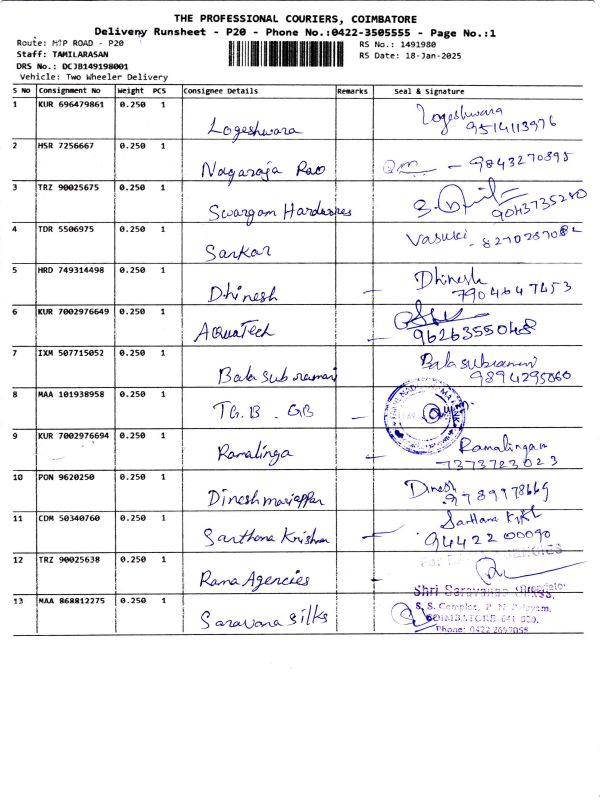 THE PROFESSIONAL COURIERS, COIMBATORE
Delivery Runsheet - P20 - Phone No.:0422-3505555 - Page No.:1
Route: MTP ROAD - P20 RS No.: 1491980
Staff: TAMILARASAN RS Date: 18-Jan-2025
DRS No.: DCJB149198001
Vehicle: Two Wheeler Delivery
S No Consignment No Weight PCS Consignee Details Remarks Seal & Signature
1 KUR 696479861 0.250 1 Logeshwara Logeshwara
9514113976
2 HSR 7256667 0.250 1 Nagaraja Rao - 9843270895
3 TRZ 90025675 0.250 1 Swargam Hardwares
9043735240
4 TDR 5506975 0.250 1 Sankar Vasuki -
5 HRD 749314498 0.250 1 Dhinesh - Dhinesh
7904647453
6 KUR 7002976649 0.250 1 AcquaTech -
9626355048
7 IXM 507715052 0.250 1 Balasubramani Balasubramani
9894295060
8 MAA 101938958 0.250 1 T.G.B. GB -
9 KUR 7002976694 0.250 1 Ramalinga Ramalingam
7373723023
10 PON 9620250 0.250 1 Dineshmariappan Dinesh
9789978669
11 CDM 50340760 0.250 1 Santhana Krishnan - Santhana
9442200090
12 TRZ 90025638 0.250 1 Rama Agencies - AGENCIES
13 MAA 868812275 0.250 1 Saravana Silks Shri Saravanaa
S. S. Complex, P. N. Palayam,
COIMBATORE-641 020.
Phone: 0422 2697055